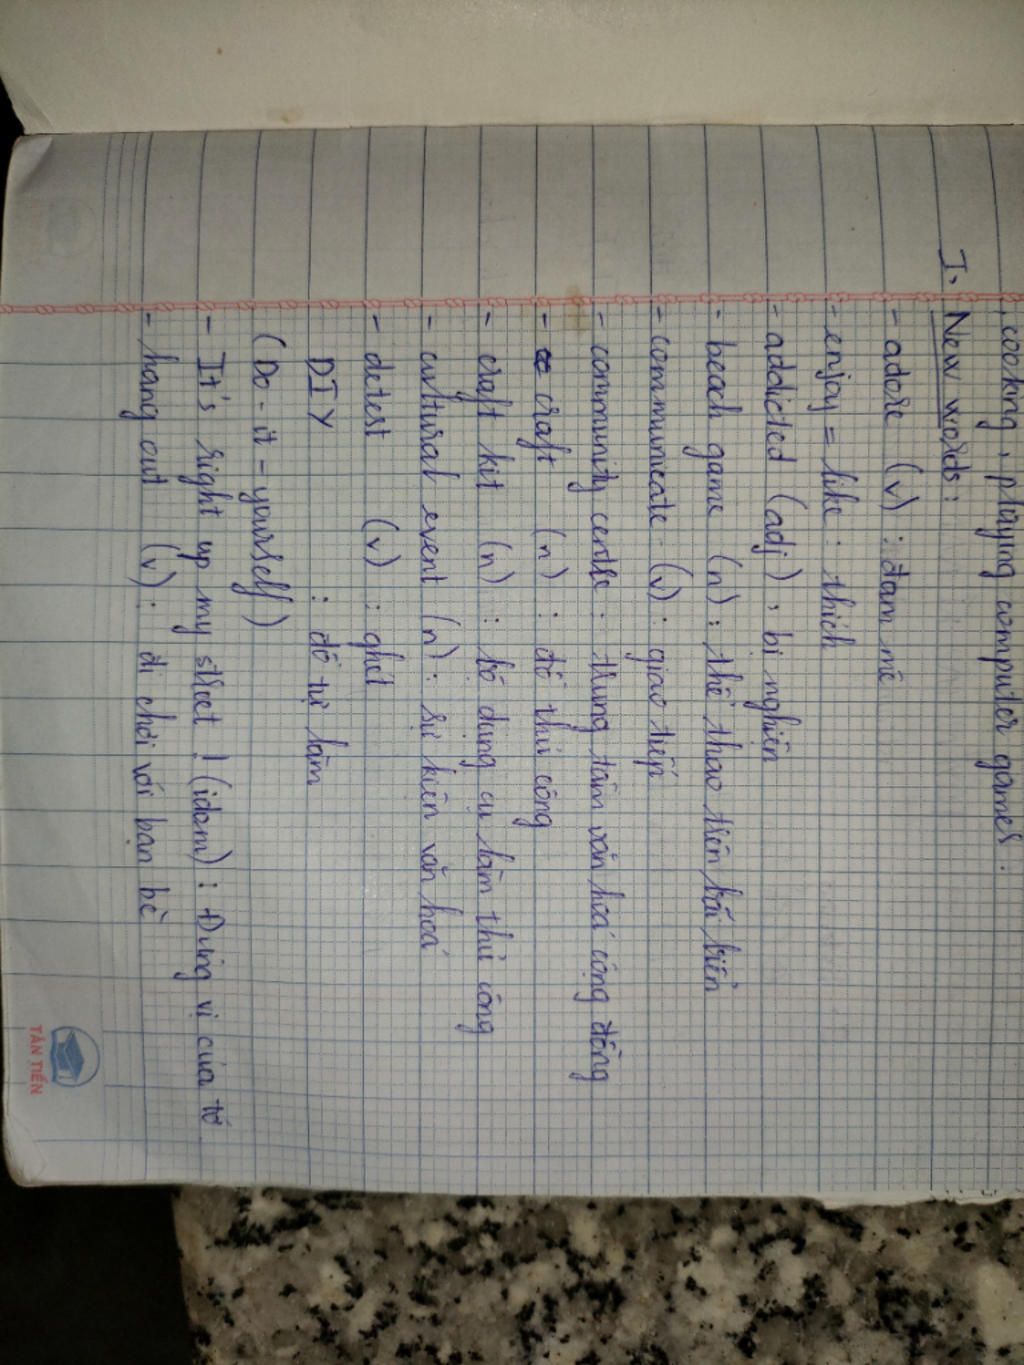 , cooking, playing computer games.
I, New words:
- adore (v) : đam mê
- enjoy = like : thích
- addicted (adj) : bị nghiện
- beach game (n) : thể thao trên bãi biển
- communicate (v) : giao tiếp
- community centre : trung tâm văn hoá cộng đồng
- craft (n) : đồ thủ công
- craft kit (n) : bộ dụng cụ làm thủ công
- cultural event (n) : sự kiện văn hoá
- detest (v) : ghét
DIY : đồ tự làm
(Do - it - yourself)
- It's right up my street ! (idom) : Đúng vị của tớ
- hang out (v) : đi chơi với bạn bè
TÂN TIẾN